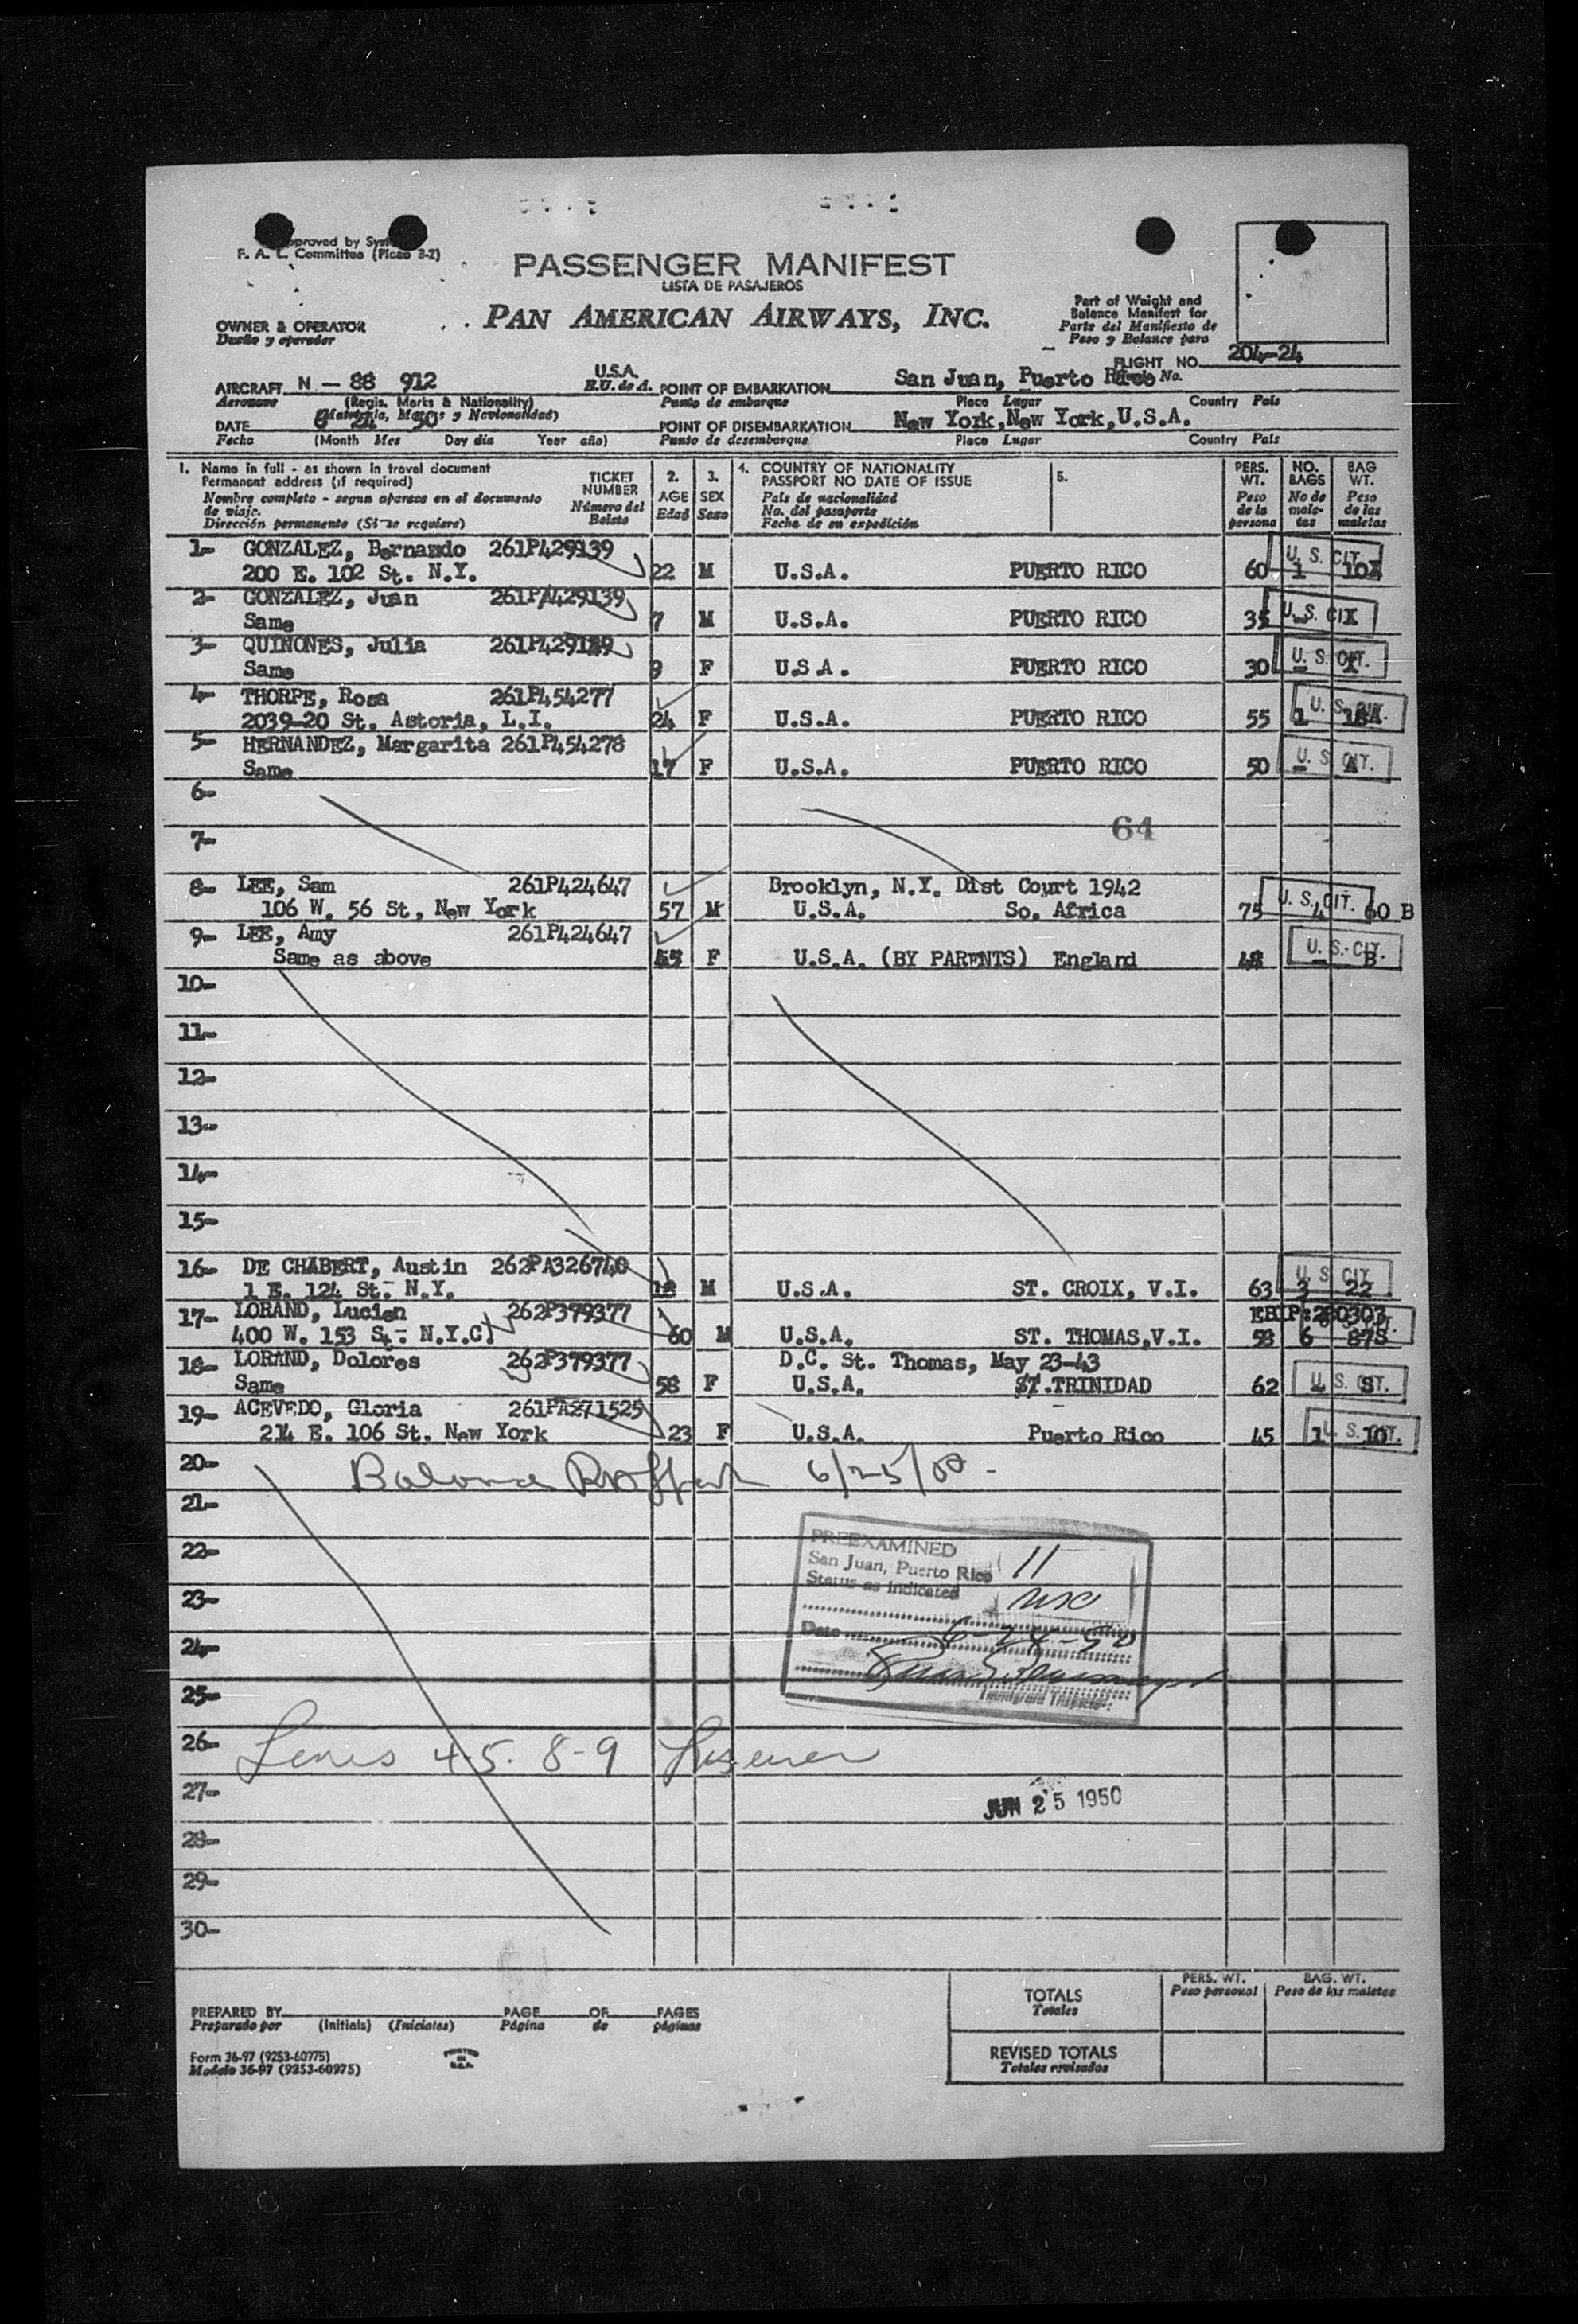 Approved by
F. A. L. Committee (Picao 3-2)
PASSENGER MANIFEST
LISTA DE PASAJEROS
PAN AMERICAN AIRWAYS, INC.
OWNER & OPERATOR
Dueño y operador
Part of Weight and
Balance Manifest for
Parte del Manifiesto de
Peso y Balance para
FLIGHT NO. 204-24
No.
AIRCRAFT N - 88 912 U.S.A. POINT OF EMBARKATION San Juan, Puerto Rico
Aeronave (Regis. Marks & Nationality) E.U. de A. Punto de embarque Place Lugar Country País
(Matrícula, Marcas y Nacionalidad)
DATE 6 24 50 POINT OF DISEMBARKATION New York,New York,U.S.A.
Fecha (Month Mes Day día Year año) Punto de desembarque Place Lugar Country País
1. Name in full - as shown in travel document
Permanent address (if required)
Nombre completo - segun aparece en el documento
de viaje.
Dirección permanente (Si se requiere)
TICKET
NUMBER
Número del
Boleto
2.
AGE
Edad
3.
SEX
Sexo
4. COUNTRY OF NATIONALITY
PASSPORT NO DATE OF ISSUE
País de nacionalidad
No. del pasaporte
Fecha de su expedición
5.
PERS.
WT.
Peso
de la
persona
NO.
BAGS
No de
male-
tas
BAG
WT.
Peso
de las
maletas
1- GONZALEZ, Bernando 261P429139 U. S. CIT.
200 E. 102 St. N.Y. 22 M U.S.A. PUERTO RICO 60 1 10X
2- GONZALEZ, Juan 261PA429139 U. S. CIT.
Same 7 M U.S.A. PUERTO RICO 35 - X
3- QUINONES, Julia 261P429139 U. S. CIT.
Same 9 F U.S.A. PUERTO RICO 30 - X
4- THORPE, Rosa 261P454277 U. S. CIT.
2039-20 St. Astoria, L.I. 24 F U.S.A. PUERTO RICO 55 1
5- HERNANDEZ, Margarita 261P454278 U. S. CIT.
Same 17 F U.S.A. PUERTO RICO 50 - A
6-
7- 64
8- LEE, Sam 261P424647 Brooklyn, N.Y. Dist Court 1942 U. S. CIT.
106 W. 56 St, New York 57 M U.S.A. So. Africa 75 4 60 B
9- LEE, Amy 261P424647 U. S. CIT.
Same as above F U.S.A. (BY PARENTS) England 48 - B
10-
11-
12-
13-
14-
15-
16- DE CHABERT, Austin 262PA326740 U. S. CIT.
1 E. 124 St. N.Y. 18 M U.S.A. ST. CROIX, V.I. 63 3 22
17- LORAND, Lucien 262P379377
400 W. 153 St- N.Y.C. 60 M U.S.A. ST. THOMAS,V.I. 53 6 87S
18- LORAND, Dolores 262P379377 D.C. St. Thomas, May 23-43
Same 58 F U.S.A. ST.TRINIDAD 62 U. S. CIT.
19- ACEVEDO, Gloria 261PA271525
214 E. 106 St. New York 23 F U.S.A. Puerto Rico 45 1 10 U. S. CIT.
20- 6/25/50 -
21-
22- PREEXAMINED 11
San Juan, Puerto Rico
Status as indicated USC
23-
Date 6-24-50
24-
25- Immigrant Inspector
26- Lines 4-5. 8-9
27- JUN 25 1950
28-
29-
30-
TOTALS
Totales
PERS. WT.
Peso personal
BAG. WT.
Peso de las maletas
REVISED TOTALS
Totales revisados
PREPARED BY PAGE OF PAGES
Preparado por (Initials) (Iniciales) Página de páginas
Form 36-97 (9253-60775)
Modelo 36-97 (9253-60975)
PRINTED
IN
U.S.A.